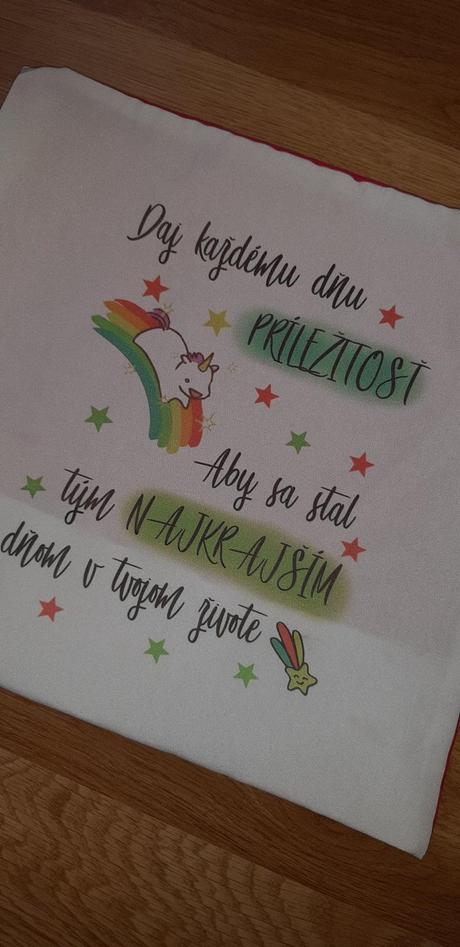 Daj každému dňu
PRÍLEŽITOSŤ
Aby sa stal
tým NAJKRAJŠÍM
dňom v tvojom živote